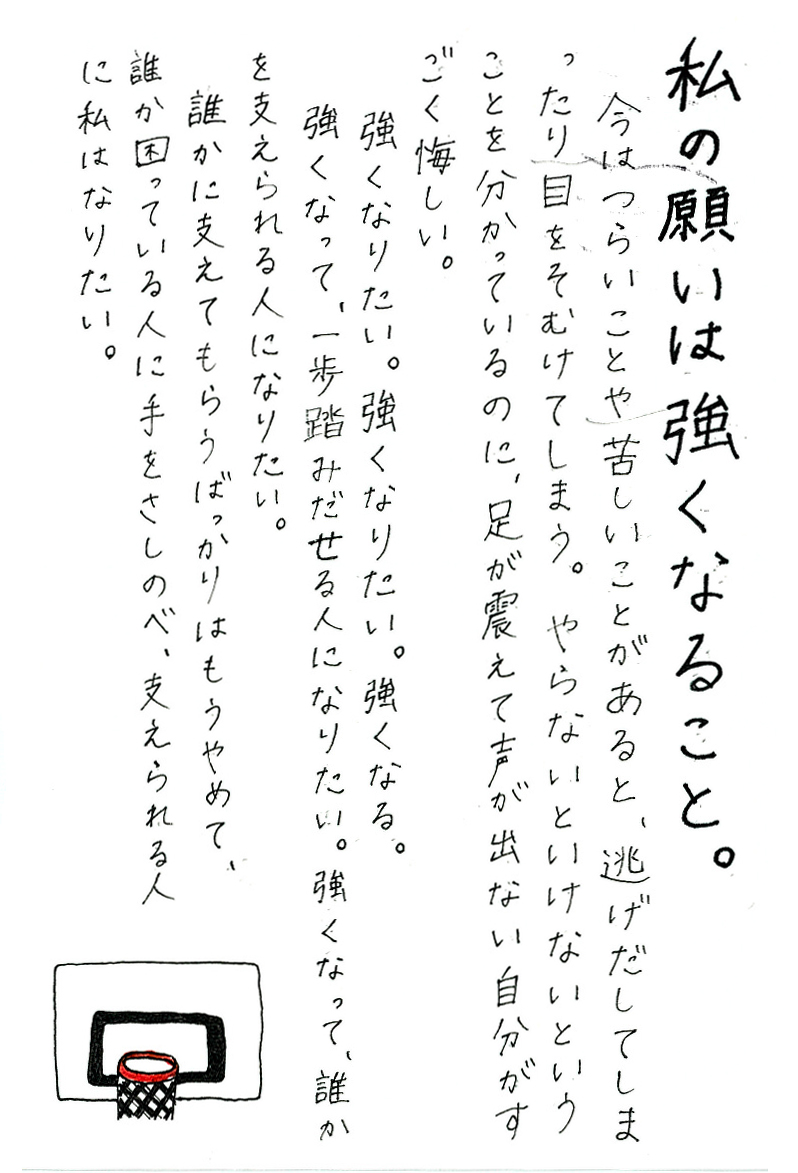 私の願いは強くなること。
今はつらいことや苦しいことがあると、逃げだしてしま
ったり目をそむけてしまう。やらないといけないという
ことを分かっているのに、足が震えて声が出ない自分がす
ごく悔しい。
強くなりたい。強くなりたい。強くなる。
強くなって、一歩踏みだせる人になりたい。強くなって、誰か
を支えられる人になりたい。
誰かに支えてもらうばっかりはもうやめて、
誰か困っている人に手をさしのべ、支えられる人
に私はなりたい。